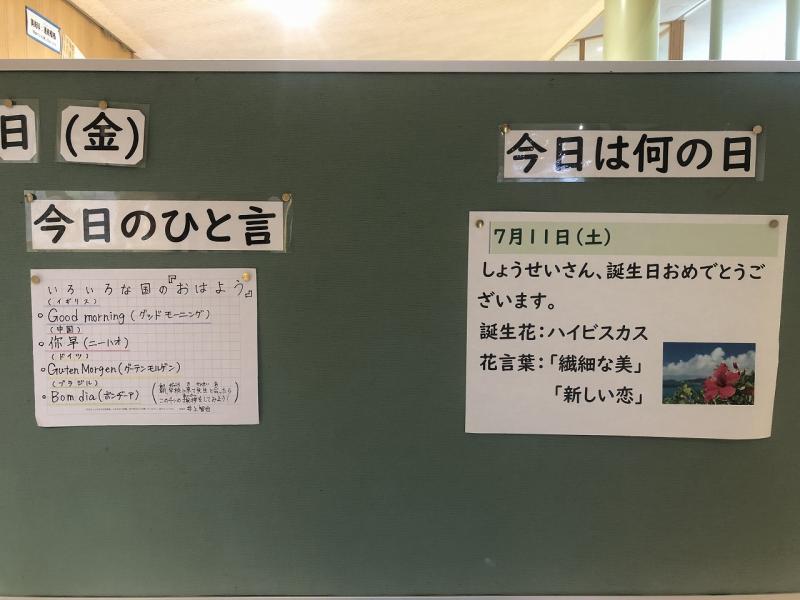 日
(金)
今日のひと言
いろいろな国の『おはよう』
(イギリス)
Good morning (グッドモーニング)
(中国)
你早 (ニーハオ)
(ドイツ)
Guten Morgen (グーテンモルゲン)
(ブラジル)
Bom dia (ボンヂーア)
この4つの挨拶をしてみよう!
今日は何の日
7月11日(土)
しょうせいさん、誕生日おめでとうご
ざいます。
誕生花:ハイビスカス
花言葉:「繊細な美」
「新しい恋」